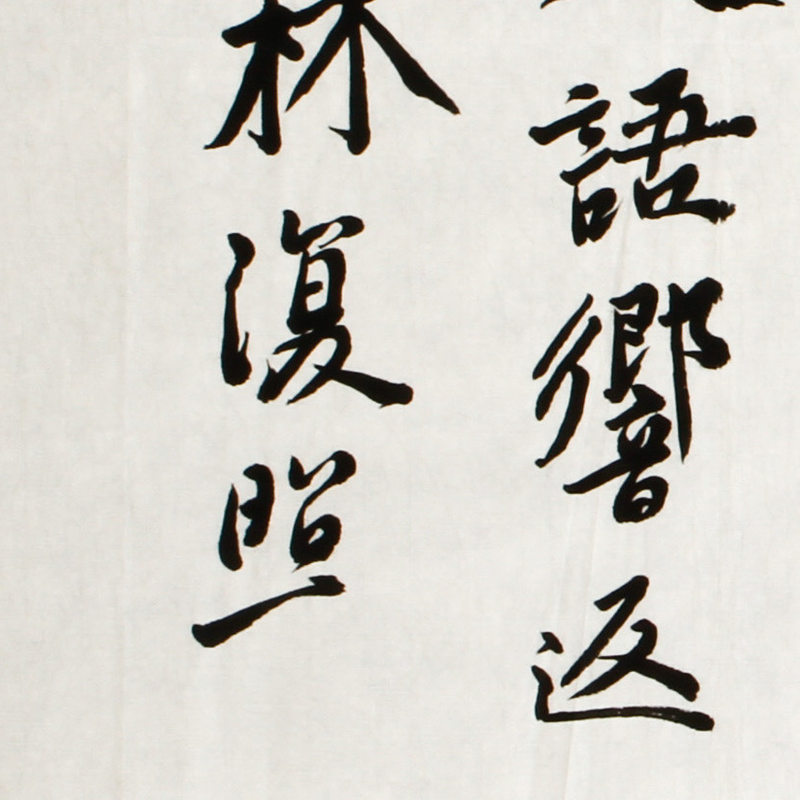 語響返
林復照